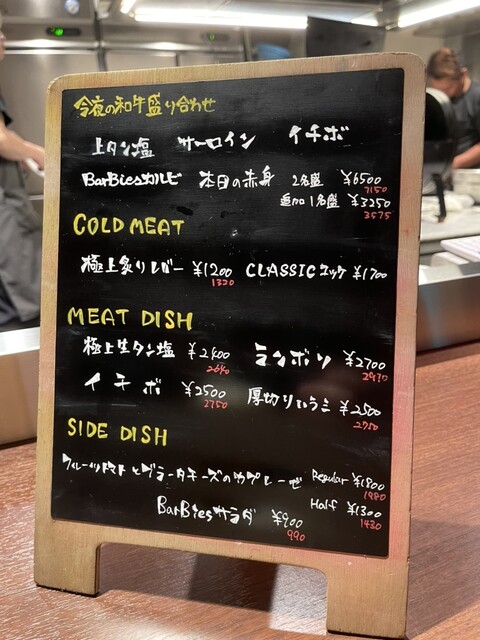 今夜の和牛盛り合わせ
上タン塩 サーロイン イチボ
BarBiesカルビ 本日の赤身 2名盛 ¥6500
7150
追加1名盛 ¥3250
3575
COLD MEAT
極上炙りレバー ¥1200 CLASSICユッケ ¥1700
1320
MEAT DISH
極上生タン塩 ¥2400 ランボソ ¥2700
2640 2970
イチボ ¥2500 厚切りハラミ ¥2500
2750 2750
SIDE DISH
フルーツトマトとブラータチーズのカプレーゼ Regular ¥1800
1980
Half ¥1300
1430
BarBiesサラダ ¥900
990